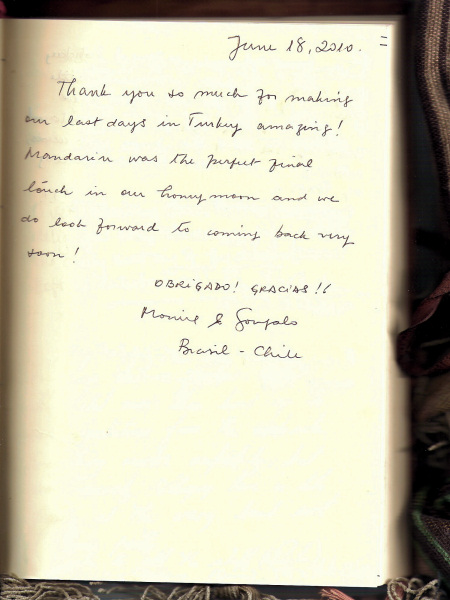 June 18, 2010.
Thank you so much for making
our last days in Turkey amazing!
Mandarin was the perfect final
touch in our honeymoon and we
do look forward to coming back very
soon!
OBRIGADO! GRACIAS!!
Monire & Gonzalo
Brasil - Chile